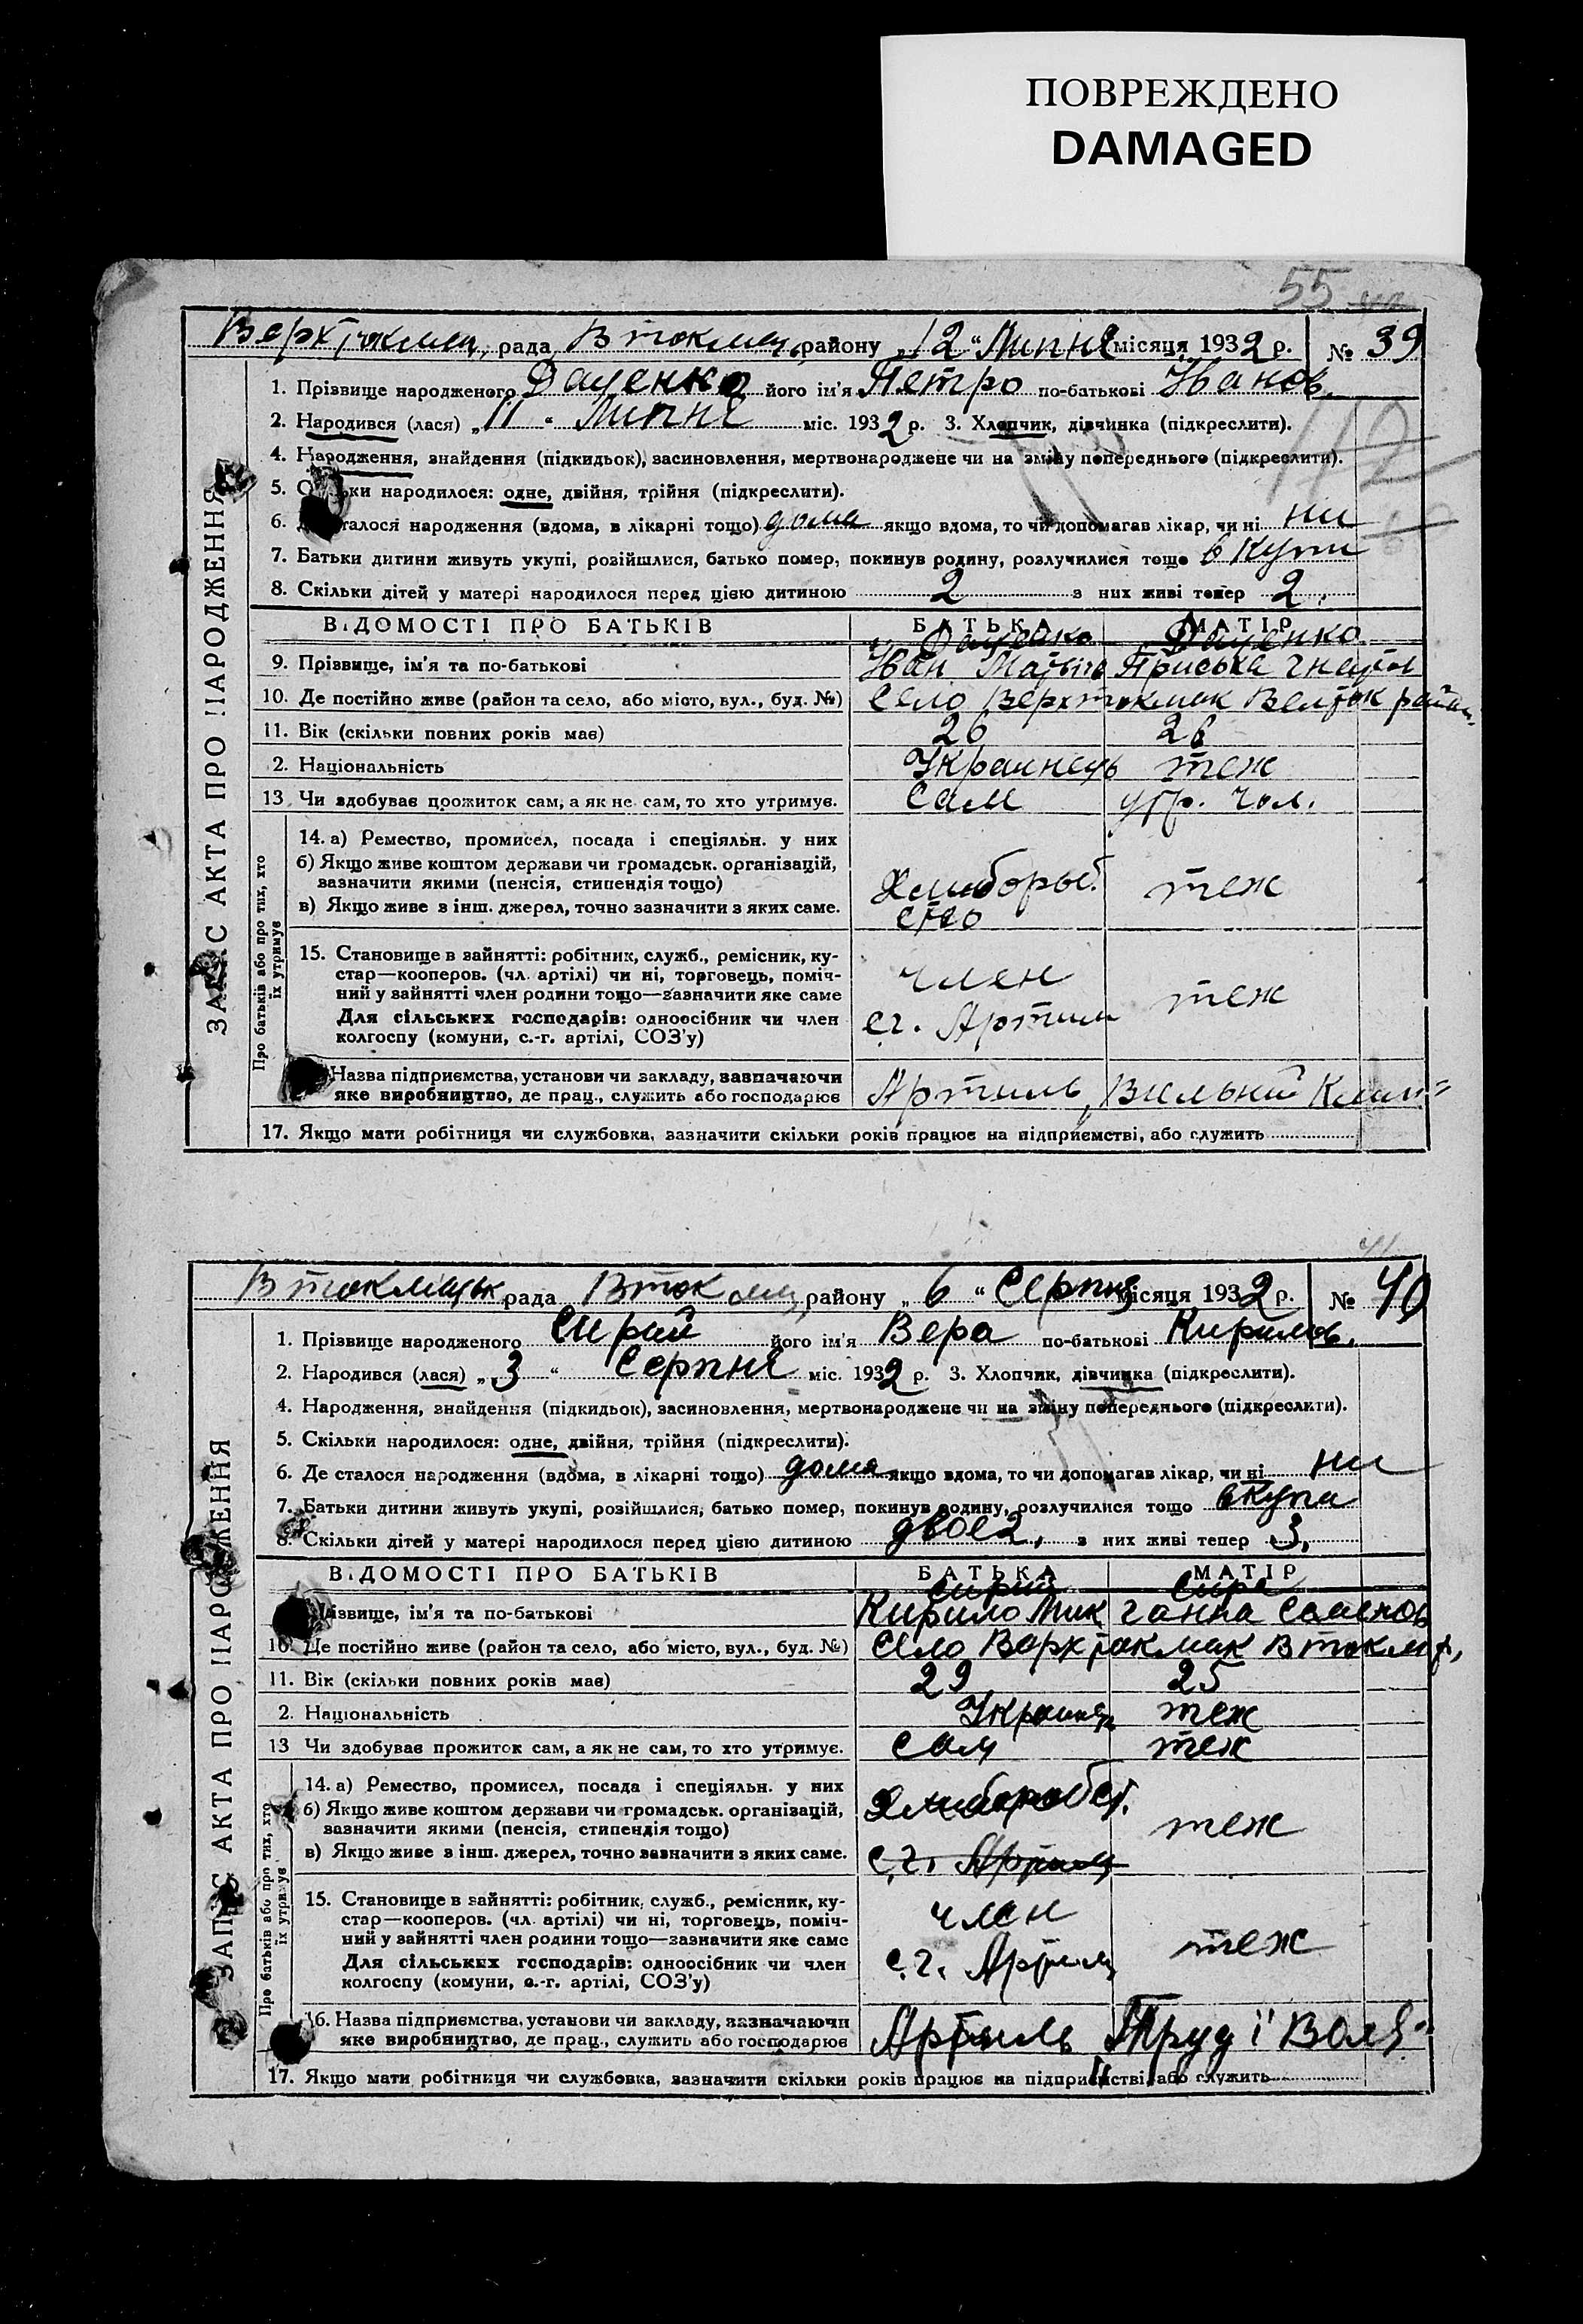 ПОВРЕЖДЕНО
DAMAGED
55
Верхтокмац. рада, Втокмац. району „12“ Липня місяця 1932 р. № 39
1. Прізвище народженого Даценко його ім'я Петро по-батькові Іванов.
2. Народився (лася) „11“ Липня міс. 1932 р. 3. Хлопчик, дівчинка (підкреслити).
112
4. Народження, знайдення (підкидьок), засиновлення, мертвонароджене чи на зміну попереднього (підкреслити).
5. народилося: одне, двійня, трійня (підкреслити).
6. сталося народження (вдома, в лікарні тощо) дома якщо вдома, то чи допомагав лікар, чи ні ни
7. Батьки дитини живуть укупі, розійшлися, батько помер, покинув родину, розлучилися тощо в купи
8. Скільки дітей у матері народилося перед цією дитиною 2 з них живі тепер 2.
ВІДОМОСТІ ПРО БАТЬКІВ БАТЬКА МАТІР
Даценко Даценко
9. Прізвище, ім'я та по-батькові Іван Приська Гнатов
10. Де постійно живе (район та село, або місто, вул., буд. №) Село Верхтокмак Велток район.
11. Вік (скільки повних років має) 26 26
2. Національність Украинець теж
13. Чи здобуває прожиток сам, а як не сам, то хто утримує. Сам утр. чол.
14. а) Ремество, промисел, посада і спеціяльн. у них
б) Якщо живе коштом держави чи громадськ. організацій,
зазначити якими (пенсія, стипендія тощо) Хлиборобство теж
в) Якщо живе з інш. джерел, точно зазначити з яких саме.
15. Становище в зайнятті: робітник, служб., ремісник, ку-
стар—кооперов. (чл. артілі) чи ні, торговець, поміч- член
ний у зайнятті член родини тощо—зазначити яке саме теж
Для сільських господарів: одноосібник чи член с.г. Артили
колгоспу (комуни, с.-г. артілі, СОЗ'у)
Назва підприємства, установи чи закладу, зазначаючи
яке виробництво, де прац., служить або господарює Артиль „Вильний
17. Якщо мати робітниця чи службовка, зазначити скільки років працює на підприємстві, або служить
ЗАПИС АКТА ПРО НАРОДЖЕННЯ
Про батьків або про тих, хто їх утримує
41
Втокмацьк рада Втокмац, району „6“ Серпня місяця 1932 р. № 40
1. Прізвище народженого Сирий його ім'я Вера по-батькові Кирилов.
2. Народився (лася) „3“ Серпня міс. 1932 р. 3. Хлопчик, дівчинка (підкреслити).
4. Народження, знайдення (підкидьок), засиновлення, мертвонароджене чи на зміну попереднього (підкреслити).
5. Скільки народилося: одне, двійня, трійня (підкреслити).
6. Де сталося народження (вдома, в лікарні тощо) дома якщо вдома, то чи допомагав лікар, чи ні ни
7. Батьки дитини живуть укупі, розійшлися, батько помер, покинув родину, розлучилися тощо вкупи
8. Скільки дітей у матері народилося перед цією дитиною двое2, з них живі тепер 3.
ВІДОМОСТІ ПРО БАТЬКІВ БАТЬКА МАТІР
Сирий Сира
Прізвище, ім'я та по-батькові Кирило Мик Ганна Семенов
10. Де постійно живе (район та село, або місто, вул., буд. №) Село Верхтокмак Втокм р,
11. Вік (скільки повних років має) 29 25
2. Національність Украинец теж
13 Чи здобуває прожиток сам, а як не сам, то хто утримує. Сам теж
14. а) Ремество, промисел, посада і спеціяльн. у них Хлиборобст.
б) Якщо живе коштом держави чи громадськ. організацій,
зазначити якими (пенсія, стипендія тощо) теж
в) Якщо живе з інш. джерел, точно зазначити з яких саме. с.г. Артиль
15. Становище в зайнятті: робітник, служб., ремісник, ку-
стар—кооперов. (чл. артілі) чи ні, торговець, поміч- член
ний у зайнятті член родини тощо—зазначити яке саме теж
Для сільських господарів: одноосібник чи член с.г. Артил
колгоспу (комуни, с.-г. артілі, СОЗ'у)
16. Назва підприємства, установи чи закладу, зазначаючи
яке виробництво, де прац., служить або господарює Артиль „Труд і Воля“
17. Якщо мати робітниця чи службовка, зазначити скільки років працює на підприємстві, або служить
ЗАПИС АКТА ПРО НАРОДЖЕННЯ
Про батьків або про тих, хто їх утримує